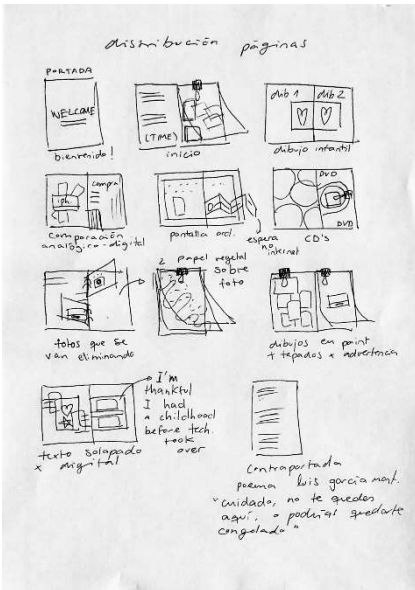 distribución páginas
PORTADA
WELCOME
bienvenido!
(TIME)
inicio
dib 1 dib 2
dibujo infantil
compra
comparación
analógico-digital
pantalla ord.
espera
no
internet
DVD
DVD
CD's
fotos que se
van eliminando
2 papel vegetal
sobre
foto
dibujos en paint
+ tapados x advertencia
texto solapado
x digital
I'm
thankful
I had
a childhood
before tech.
took
over
contraportada
poema luis garcía mont.
"cuidado, no te quedes
aquí, o podrías quedarte
congelado"